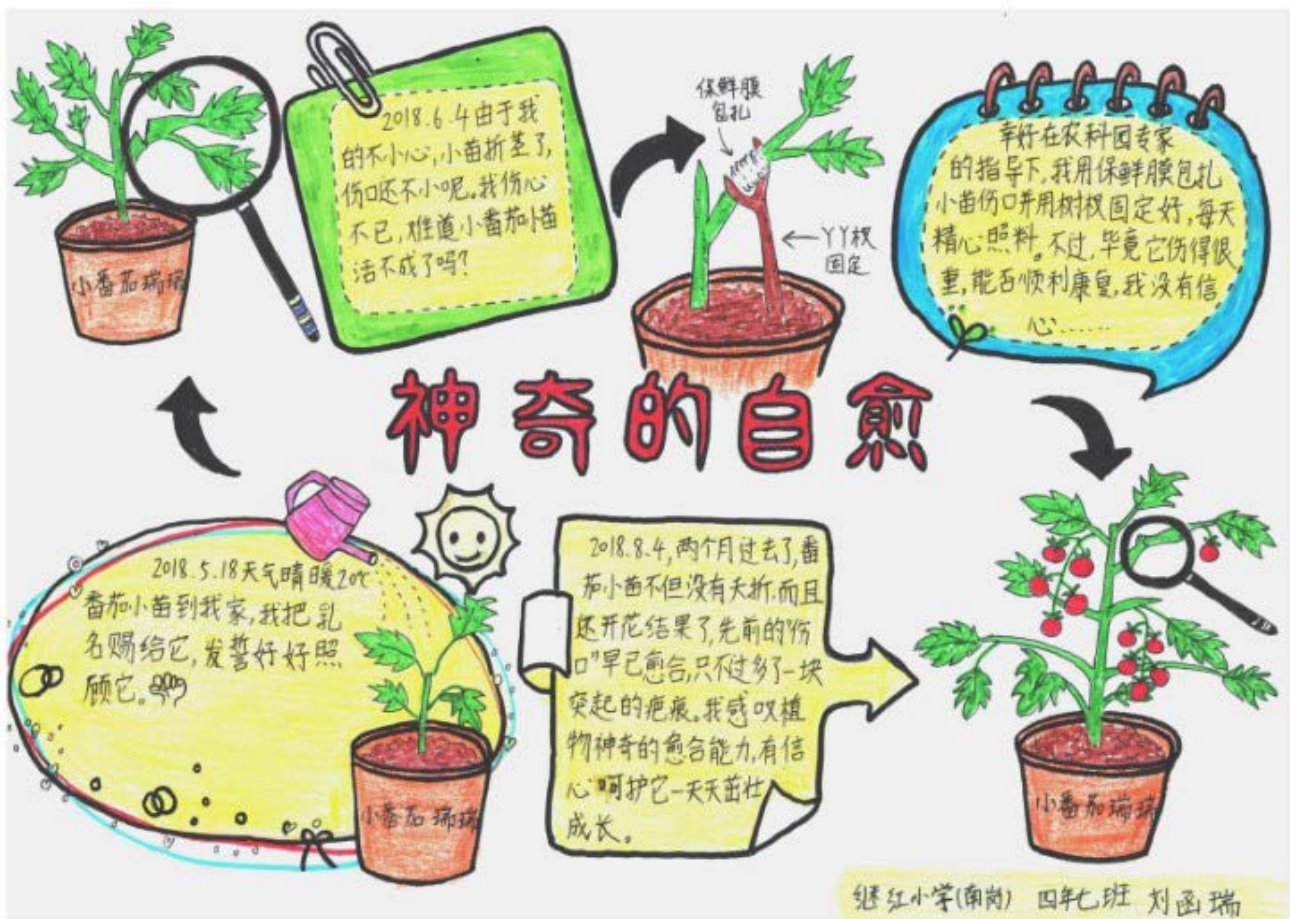 小番茄瑞瑞
2018.6.4由于我
的不小心,小苗折茎了,
伤口还不小呢。我伤心
不已,难道小番茄小苗
活不成了吗?
保鲜膜
包扎
丫丫杈
固定
幸好在农科园专家
的指导下,我用保鲜膜包扎
小苗伤口并用树杈固定好,每天
精心照料。不过,毕竟它伤得很
重,能否顺利康复,我没有信
心……
神奇的自愈
2018.5.18天气晴暖20℃
番茄小苗到我家,我把乳
名赐给它,发誓好好照
顾它。
小番茄瑞瑞
2018.8.4,两个月过去了,番
茄小苗不但没有夭折,而且
还开花结果了,先前的“伤
口”早已愈合,只不过多了一块
突起的疤痕。我感叹植
物神奇的愈合能力,有信
心呵护它一天天茁壮
成长。
小番茄瑞瑞
继红小学(南岗) 四年七班 刘函瑞